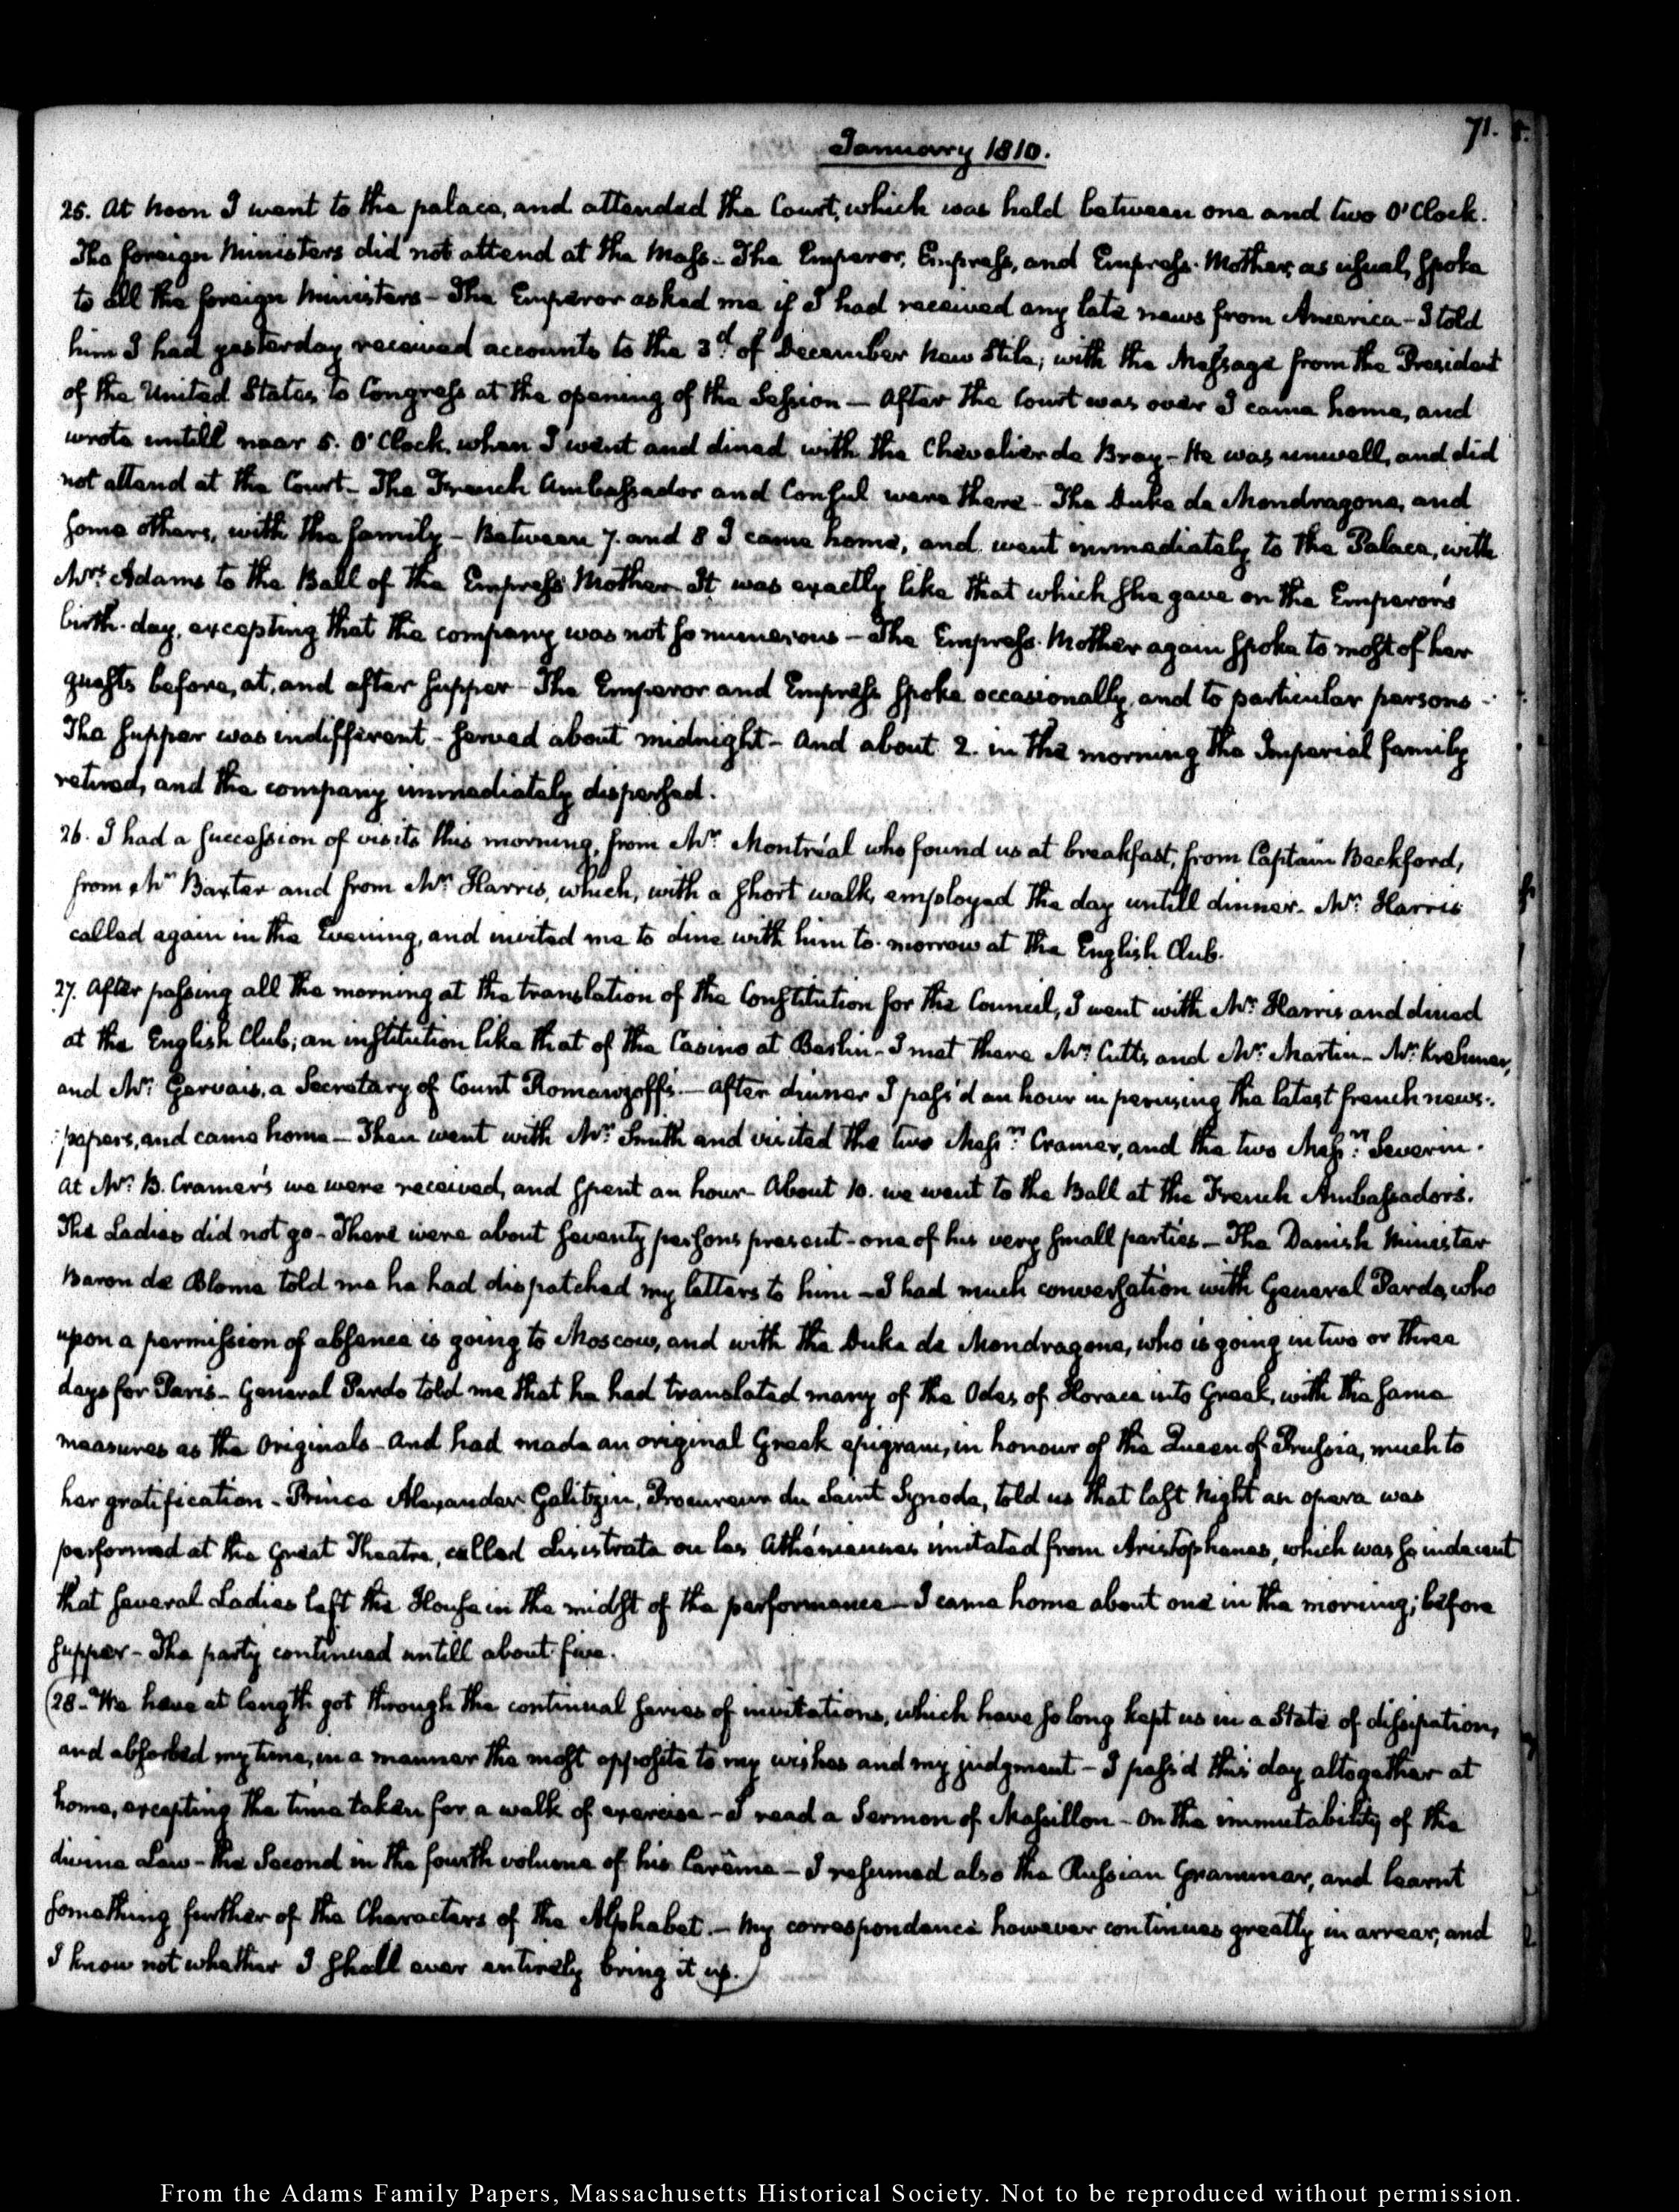 71.
January 1810.
25. At Noon I went to the palace, and attended the Court, which was held between one and two O'Clock.
The foreign Ministers did not attend at the Mass - The Emperor, Empress, and Empress-Mother, as usual, spoke
to all the foreign Ministers - The Emperor asked me if I had received any late news from America - I told
him I had yesterday received accounts to the 3d. of December New Stile; with the Message from the President
of the United States, to Congress at the opening of the Session — After the Court was over I came home, and
wrote untill near 5. O'Clock, when I went and dined with the Chevalier de Bray - He was unwell, and did
not attend at the Court - The French Ambassador and Consul were there - The Duke de Mondragone, and
some others, with the family - Between 7. and 8 I came home, and went immediately to the Palace, with
Mrs. Adams to the Ball of the Empress Mother - It was exactly like that which she gave on the Emperor's
birth-day, excepting that the company was not so numerous - The Empress-Mother again spoke to most of her
guests before, at, and after supper - The Emperor and Empress spoke occasionally, and to particular persons -
The supper was indifferent - served about midnight - And about 2. in the morning the Imperial family
retired, and the company immediately dispersed.
26. I had a succession of visits this morning, from Mr. Montréal who found us at breakfast, from Captain Beckford,
from Mr. Baxter and from Mr. Harris, which, with a short walk, employed the day untill dinner. Mr. Harris
called again in the Evening, and invited me to dine with him to-morrow at the English Club.
27. After passing all the morning at the translation of the Constitution for the Council, I went with Mr. Harris and dined
at the English Club; an institution like that of the Casino at Berlin - I met there Mr. Cutts, and Mr. Martin - Mr. Krehmer,
and Mr. Gervais, a Secretary of Count Romanzoff's. — After dinner I pass'd an hour in perusing the latest french news-
:papers, and came home — Then went with Mr. Smith and visited the two Messrs. Cramer, and the two Messrs. Severin.
At Mr. B. Cramer's we were received, and spent an hour - About 10. we went to the Ball at the French Ambassador's.
The Ladies did not go - There were about seventy persons present - one of his very small parties - The Danish Minister
Baron de Blome told me he had dispatched my letters to him - I had much conversation with General Pardo, who
upon a permission of absence is going to Moscow, and with the Duke de Mondragone, who is going in two or three
days for Paris - General Pardo told me that he had translated many of the Odes of Horace into Greek, with the same
measures as the Originals - and had made an original Greek epigram, in honour of the Queen of Prussia, much to
her gratification - Prince Alexander Galitzin, Procureur du Saint Synode, told us that last Night an opera was
performed at the great Theatre, called Lisistrata ou les Athéniennes imitated from Aristophanes, which was so indecent
that several Ladies left the House in the midst of the performance - I came home about one in the morning; before
supper - The party continued untill about five.
(28 - We have at length got through the continual series of invitations, which have so long kept us in a State of dissipation,
and absorbed my time, in a manner the most opposite to my wishes and my judgment - I pass'd this day altogether at
home, excepting the time taken for a walk of exercise - I read a Sermon of Massillon - On the immutability of the
divine Law - the Second in the fourth volume of his Carême - I resumed also the Russian Grammar, and learnt
something further of the Characters of the Alphabet. - My correspondence however continues greatly in arrear, and
I know not whether I shall ever entirely bring it up.)
From the Adams Family Papers, Massachusetts Historical Society. Not to be reproduced without permission.